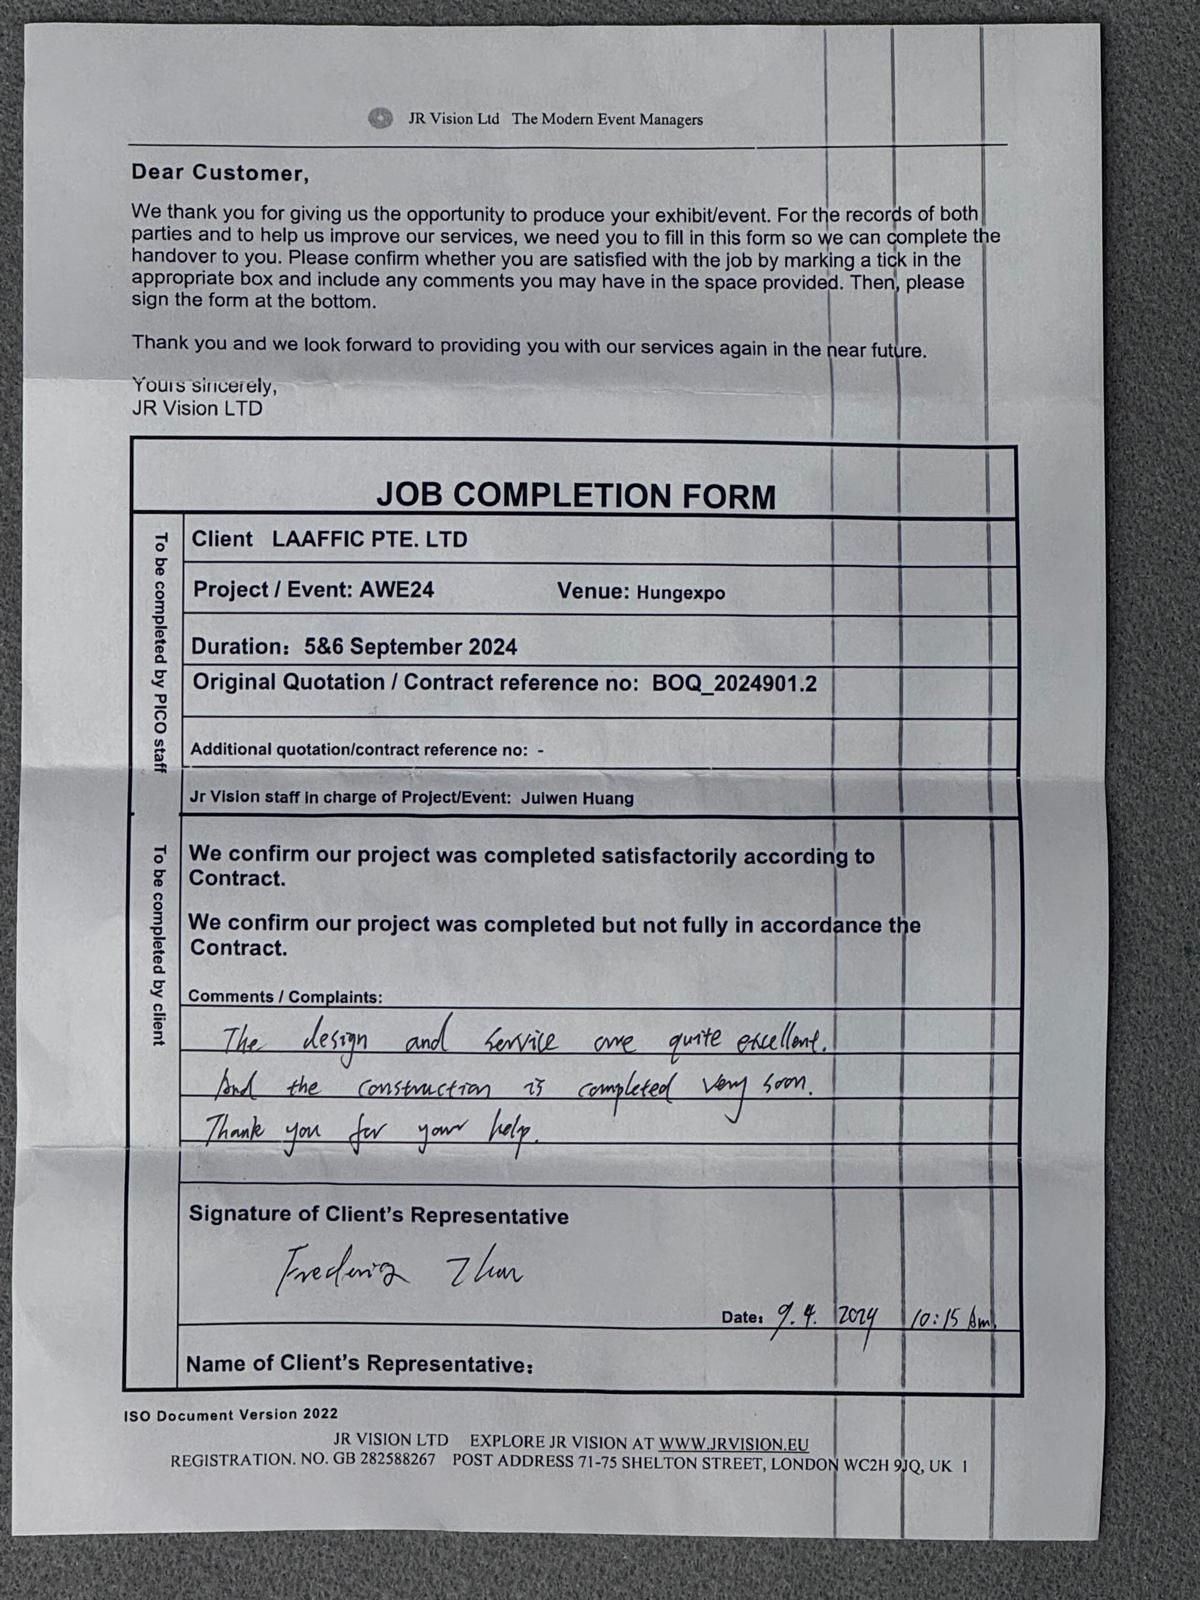 JR Vision Ltd The Modern Event Managers
Dear Customer,
We thank you for giving us the opportunity to produce your exhibit/event. For the records of both
parties and to help us improve our services, we need you to fill in this form so we can complete the
handover to you. Please confirm whether you are satisfied with the job by marking a tick in the
appropriate box and include any comments you may have in the space provided. Then, please
sign the form at the bottom.
Thank you and we look forward to providing you with our services again in the near future.
Yours sincerely,
JR Vision LTD
JOB COMPLETION FORM
To be completed by PICO staff
Client LAAFFIC PTE. LTD
Project / Event: AWE24 Venue: Hungexpo
Duration: 5&6 September 2024
Original Quotation / Contract reference no: BOQ_2024901.2
Additional quotation/contract reference no: -
Jr Vision staff in charge of Project/Event: Juiwen Huang
To be completed by client
We confirm our project was completed satisfactorily according to
Contract.
We confirm our project was completed but not fully in accordance the
Contract.
Comments / Complaints:
The design and service are quite excellent.
And the construction is completed very soon.
Thank you for your help.
Signature of Client's Representative
Date: 9. 4. 2024 10:15 Am.
Name of Client's Representative:
ISO Document Version 2022
JR VISION LTD EXPLORE JR VISION AT WWW.JRVISION.EU
REGISTRATION. NO. GB 282588267 POST ADDRESS 71-75 SHELTON STREET, LONDON WC2H 9JQ, UK 1